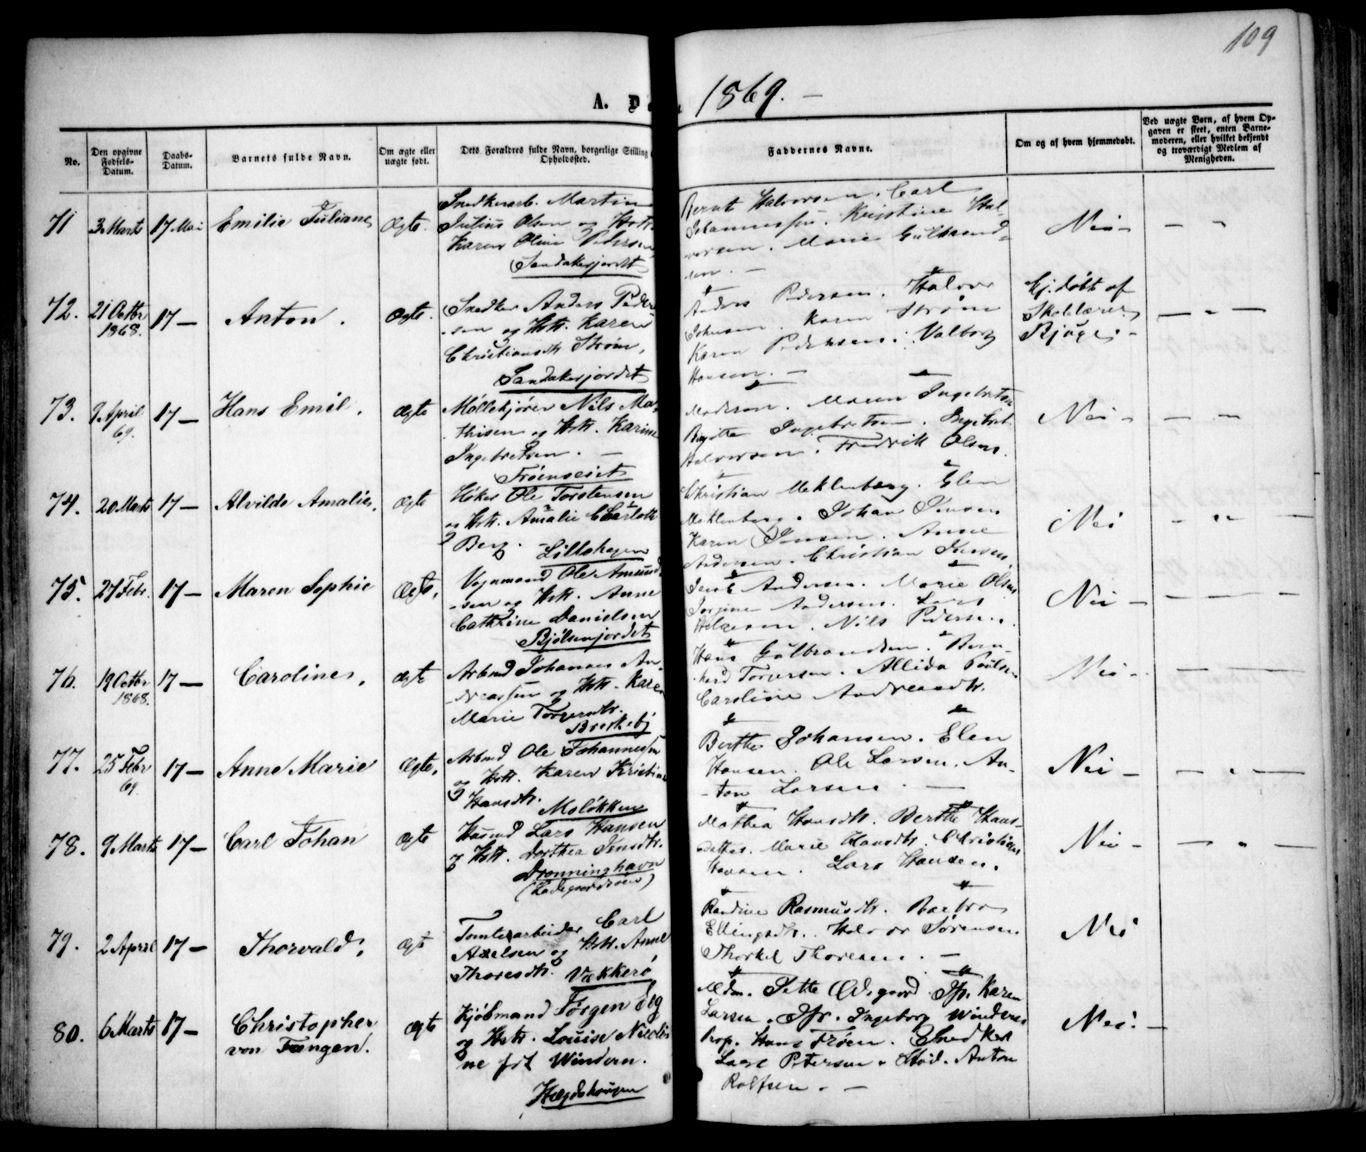 109
A. 1869. —
No.
Den opgivne Fødsels-Datum.
Daabs-Datum.
Barnets fulde Navn.
Om ægte eller uægte født.
Dets Forældres fulde Navn, borgerlige Stilling
Opholdssted.
Faddernes Navne.
Om og af hvem hjemmedøbt.
Ved uægte Børn, af hvem Opgaven er skeet, enten Barnemoderen, eller hvilket bekjendt og troværdigt Medlem af Menigheden.
71 3 Marts 17 Mai Emilie Juliane, Ægte. Snedkerarb. Martin
Julius Olsen og Hstr.
Karen Oline Peders
Sandakerjordet
Bernt Halvorsen. Carl
Johannessen, Kristine Hal-
vorsen. Marie Gulbrand-
sen. —
Nei —
72. 21 Octbr 1868. 17 — Anton. Ægte. Snedker Anders Peder-
sen og Hstr. Karen
Christiansdtr Strøm,
Sandakerjordet
Anders Pedersen. Halvor
Johnsen. Karen Strøm
Karen Pedersen. Valborg
Hansen. —
Ej. døbt af
Skolelærer
Bjøge
73. 9 April 69. 17 — Hans Emil. Ægte Møllekjører Nils Ma-
thisen og Hstr. Karine
Ingebretsen. —
Frøenseiet
Madsen. Maren Ingebretsen
Birgitte Ingebretsen. Ingebret
Halvorsen. Fredrik Olsen.
Nei —
74. 20 Marts 17 — Alvilde Amalie, Ægte Høker Ole Torstensen
og Hstr. Amalie Charlotte
Berg. Lillehagen
Christian Meklenborg. Elen
Meklenborg. Johan Jensen
Karen Jensen. Anne
Andersen. Christian Jensen,
Nei
75. 27 Febr. 17 — Maren Sophie Ægte, Vognmand Ole Amund-
sen og Hstr. Anne
Cathrine Danielsen
Bjølsenjordet
Andersen. Marie Olsen
Jørgine Andersen. Lars
Helgesen. Nils Pedersen.
Nei —
76. 19 Octbr 1868. 17 — Caroline, Ægte Arbmd Johannes An-
dreassen og Hstr. Karen
Marie Torgersdtr.
Breskeby
Hans Gulbrandsen. Bern-
hard Torgersen. Allida Paulsen
Caroline Andreasdtr.
Nei.
77. 25 Febr 69. 17 — Anne Marie Ægte, Arbmd Ole Johannesen
og Hstr. Karen Kristine
Hansdtr.
Moløkken
Berthe Johansen. Elen
Hansen. Ole Larsen. An-
ton Larsen. —
Nei —
78. 9 Marts 17 — Carl Johan Ægte Husmd Lars Hansen
og Hstr. Dorthea Jensdtr.
Dronninghavn
(Ladegaardsøen)
Mathea Hansdtr. Berthe Hans-
datter. Marie Hansdtr. Christian
Hansen. Lars Hansen.
Nei —
79. 2 April 17 — Thorvald, Ægte Tomtearbeider Carl
Axelsen og Hstr. Anne
Thoresdtr. Vækkerø,
Randine Rasmusdtr. Barbro
Ellingsdtr. Halvor Sørensen
Thorkel Thoresen. —
Nei
80. 6 Marts 17 — Christopher
von Tangen. Ægte Kjøbmand Jørgen
og Hstr. Louise Nicoli-
ne født Windern.
Hægdehaugen
Mdm. Jette Ødegaard. Jfr. Karen
Larsen. Jfr. Ingeborg Windern
Prop. Hans Frøen. Snedker
Lars Petersen. Stud. Anton
Rolfsen. —
Nei. —